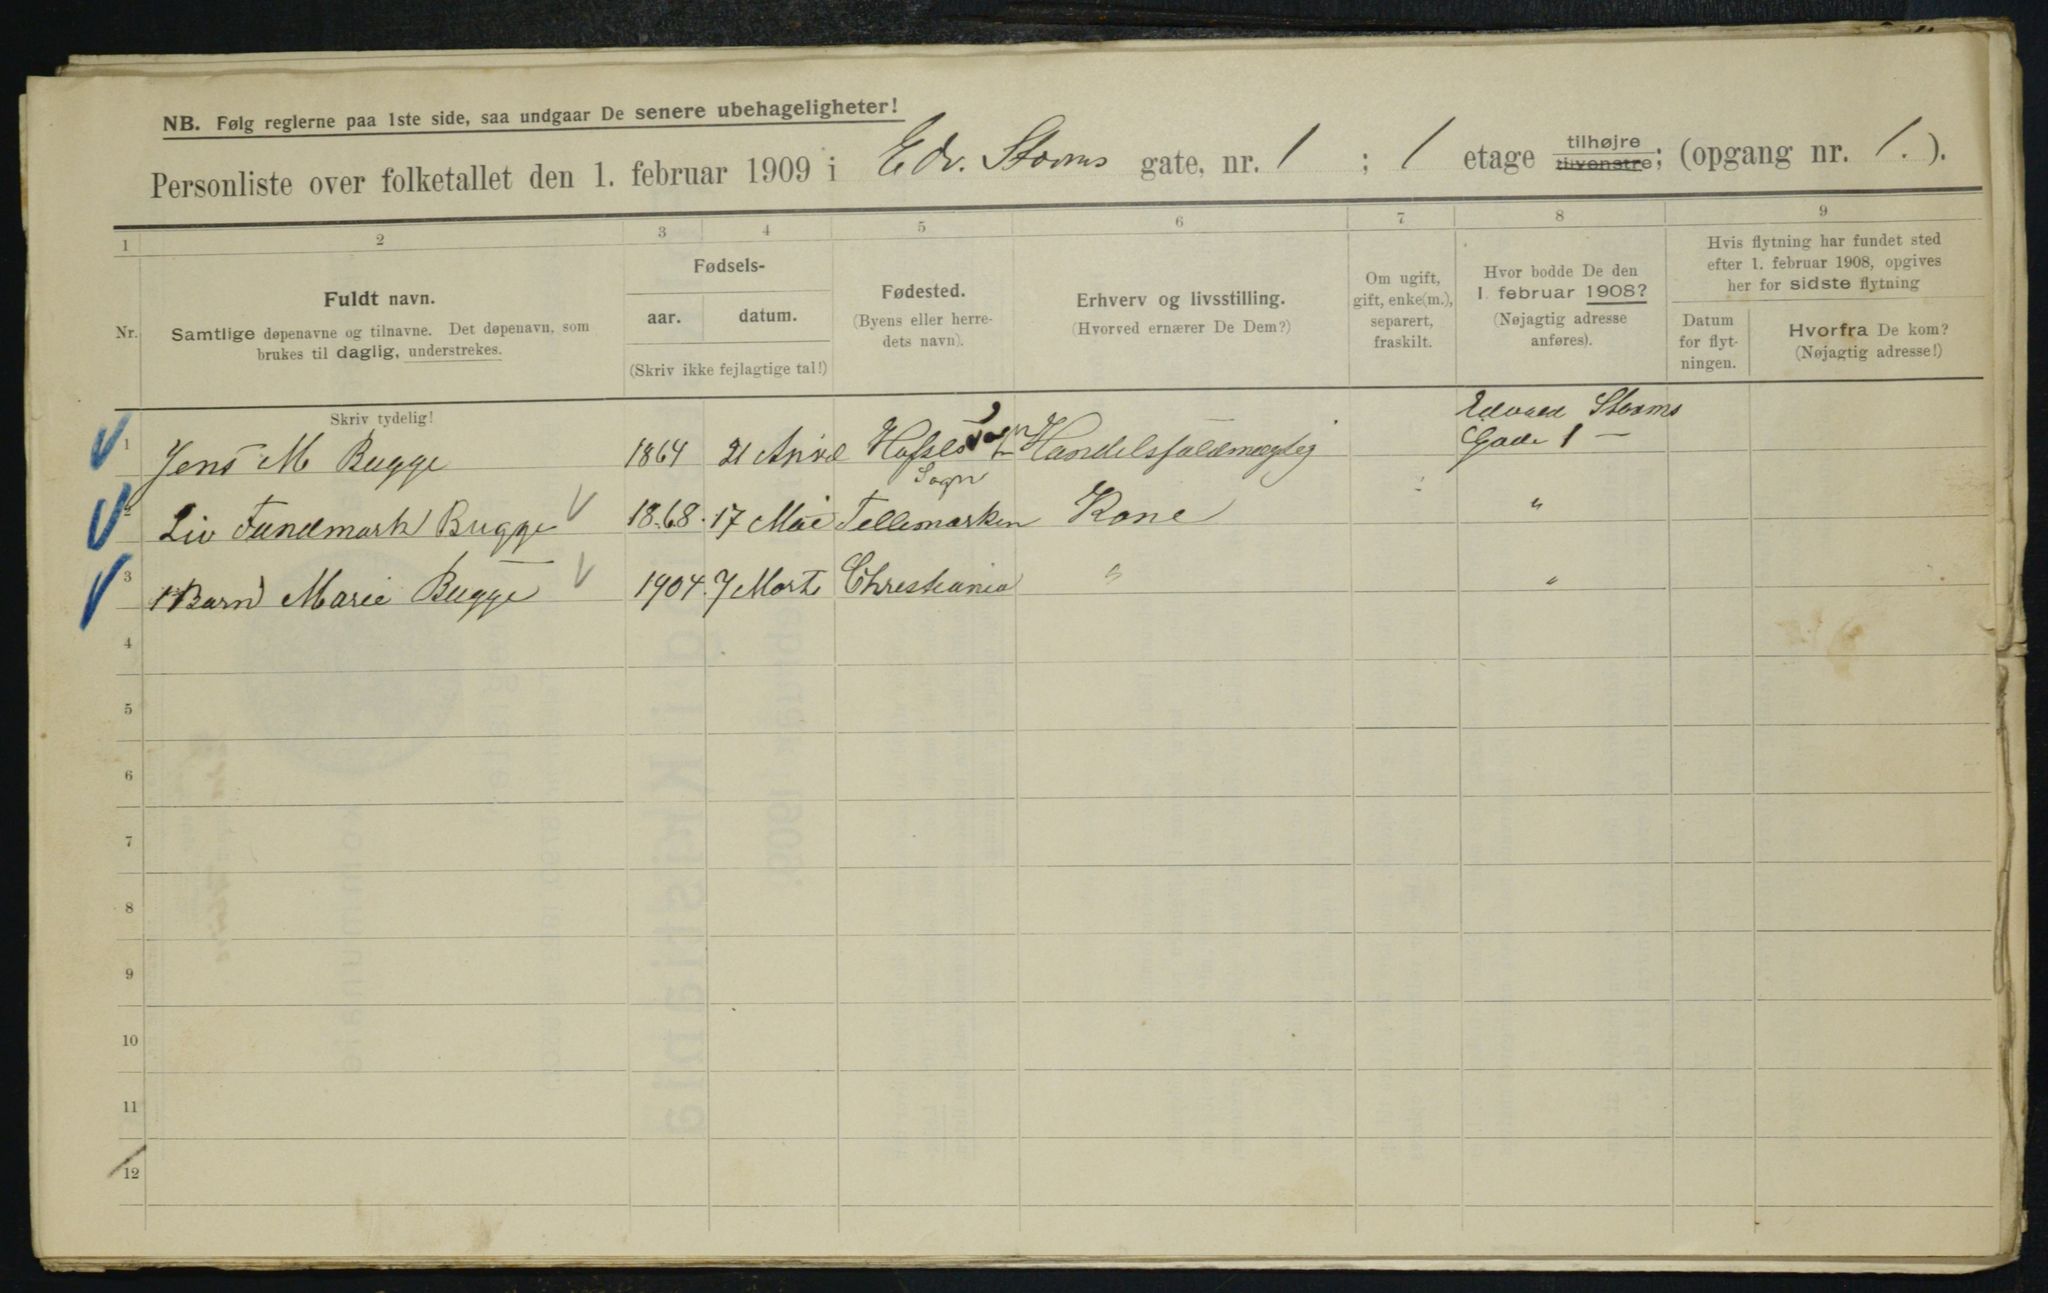 NB. Følg reglerne paa 1ste side, saa undgaar De senere ubehageligheter!
Personliste over folketallet den 1. februar 1909 i Edv. Storms gate, nr. 1 ; 1 etage tilhøjre tilvenstre; (opgang nr. 1. ).
1 2 3 4 5 6 7 8 9
Nr.
Fuldt navn.
Samtlige døpenavne og tilnavne. Det døpenavn, som
brukes til daglig, understrekes.
Fødsels-
aar. datum.
(Skriv ikke fejlagtige tal!)
Fødested.
(Byens eller herre-
dets navn).
Erhverv og livsstilling.
(Hvorved ernærer De Dem?)
Om ugift,
gift, enke(m.),
separert,
fraskilt.
Hvor bodde De den
1. februar 1908?
(Nøjagtig adresse
anføres).
Hvis flytning har fundet sted
efter 1. februar 1908, opgives
her for sidste flytning
Datum
for flyt-
ningen.
Hvorfra De kom?
(Nøjagtig adresse!)
Skriv tydelig!
Edvard Storms
1 Jens M Bugge 1864 21 April Handelsfuldmægtig Gade 1 —
Sogn
2 Liv Bugge 1868. 17 Mai Tellemarken Kone "
3 1 Barn Marie Bugge 1904. 7 Marts Christiania " "
4
5
6
7
8
9
10
11
12